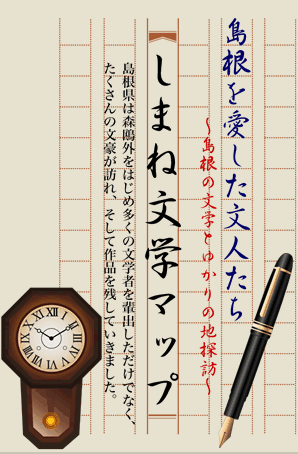 島根を愛した文人たち
～島根の文学とゆかりの地探訪～
しまね文学マップ
島根県は森鴎外をはじめ多くの文学者を輩出しただけでなく、
たくさんの文豪が訪れ、そして作品を残していきました。
XII
I
II
III
IIII
V
VI
VII
VIII
IX
X
XI